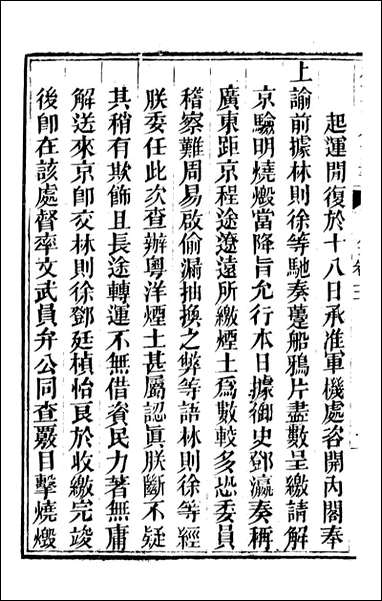 起運開復於十八日承准軍機處咨開內閣奉
上諭前據林則徐等馳奏躉船鴉片盡數呈繳請解
京驗明燒燬當降旨允行本日據御史鄧瀛奏稱
廣東距京程途遼遠所繳煙土為數較多恐委員
稽察難周易啟偷漏抽換之弊等語林則徐等經
朕委任此次查辦粵洋煙土甚屬認眞朕斷不疑
其稍有欺飾且長途轉運不無借資民力著無庸
解送來京卽交林則徐鄧廷楨怡良於收繳完竣
後卽在該處督率文武員弁公同查覈目擊燒燬